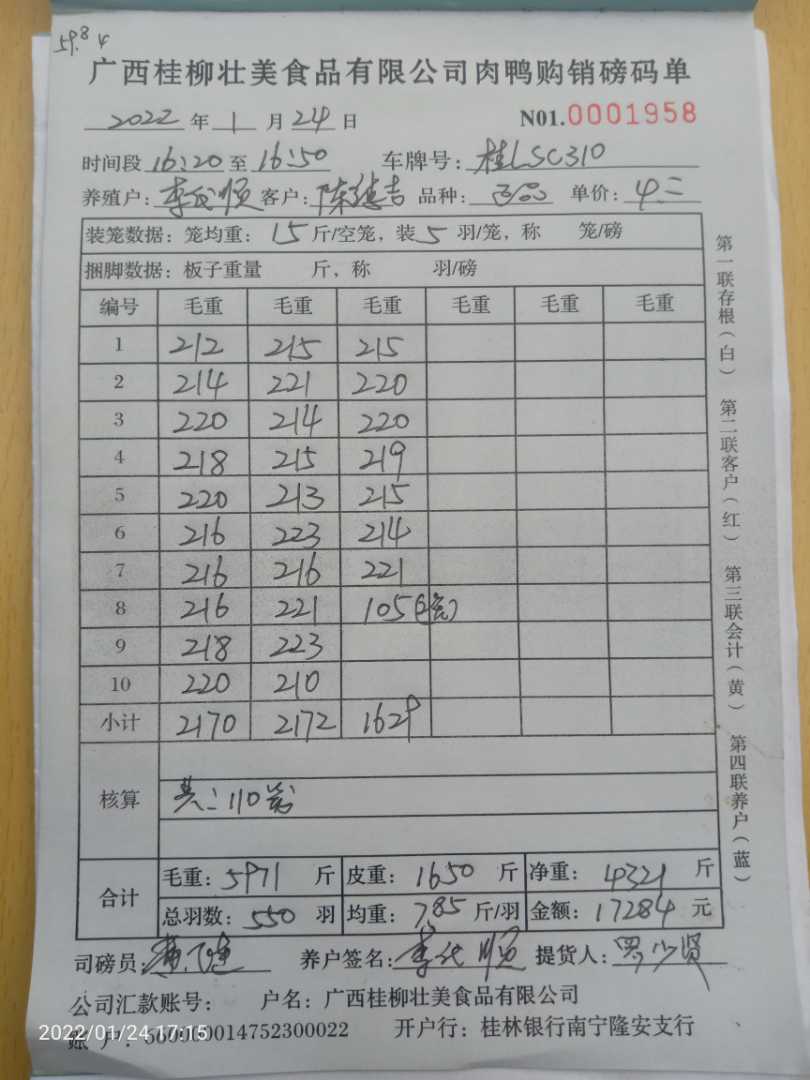 59.8 4
广西桂柳壮美食品有限公司肉鸭购销磅码单
2022 年 1 月 24 日 N01.0001958
时间段 16:20 至 16:50 车牌号: 桂LSC310
养殖户: 李 顺 客户: 陈德吉 品种: 单价: 4.
装笼数据: 笼均重: 15 斤/空笼, 装 5 羽/笼, 称 笼/磅
捆脚数据: 板子重量 斤, 称 羽/磅
编号 毛重 毛重 毛重 毛重 毛重 毛重
1 212 215 215
2 214 221 220
3 220 214 220
4 218 215 219
5 220 213 215
6 216 223 214
7 216 216 221
8 216 221 105
9 218 223
10 220 210
小计 2170 2172 1629
核算 共: 110笼
合计 毛重: 5971 斤 皮重: 1650 斤 净重: 4321 斤
总羽数: 550 羽 均重: 7.85 斤/羽 金额: 17284 元
司磅员: 养户签名: 李 顺 提货人: 罗少贤
公司汇款账号: 户名: 广西桂柳壮美食品有限公司
账 户: 660000014752300022 开户行: 桂林银行南宁隆安支行
2022/01/24 17:15
第一联存根(白) 第二联客户(红) 第三联会计(黄) 第四联养户(蓝)